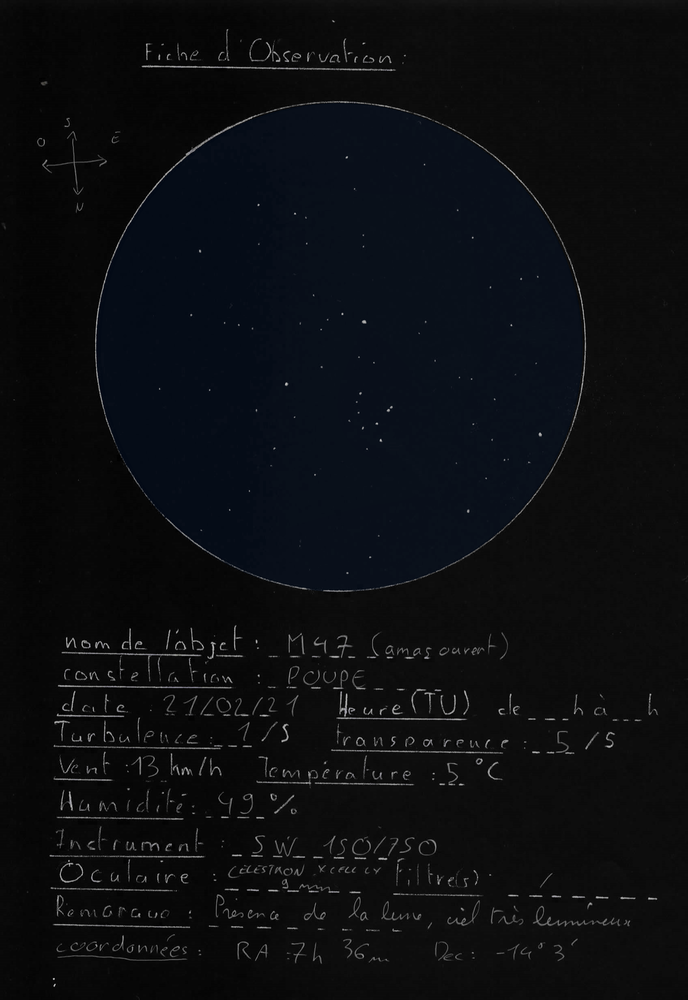 Fiche d'Observation :
S
O E
N
nom de l'objet : M47 (amas ouvert)
constellation : POUPE
date : 21/02/21 Heure (TU) de ___h à ___h
Turbulence : 1/5 transparence : 5/5
Vent : 13 km/h Température : 5 °C
Humidité : 49 %
Instrument : SW 150/750
Oculaire : CELESTRON X CELL LX 9 mm filtre(s) : /
Remarque : Présence de la lune, ciel très lumineux
coordonnées : RA : 7h 36m Dec : -14° 3'